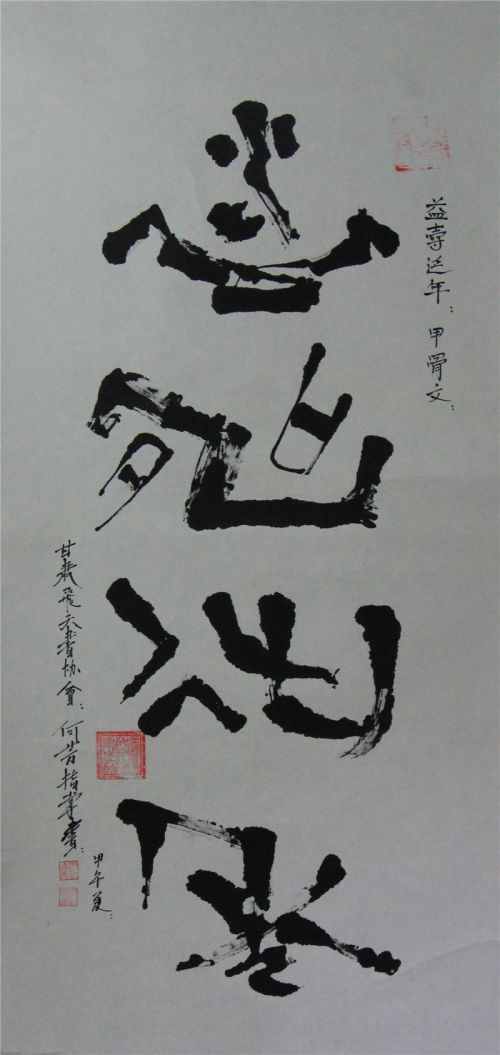 益壽延年：甲骨文：
益壽延年
甲午夏：
甘肅飛天書协會：何芳指掌書：